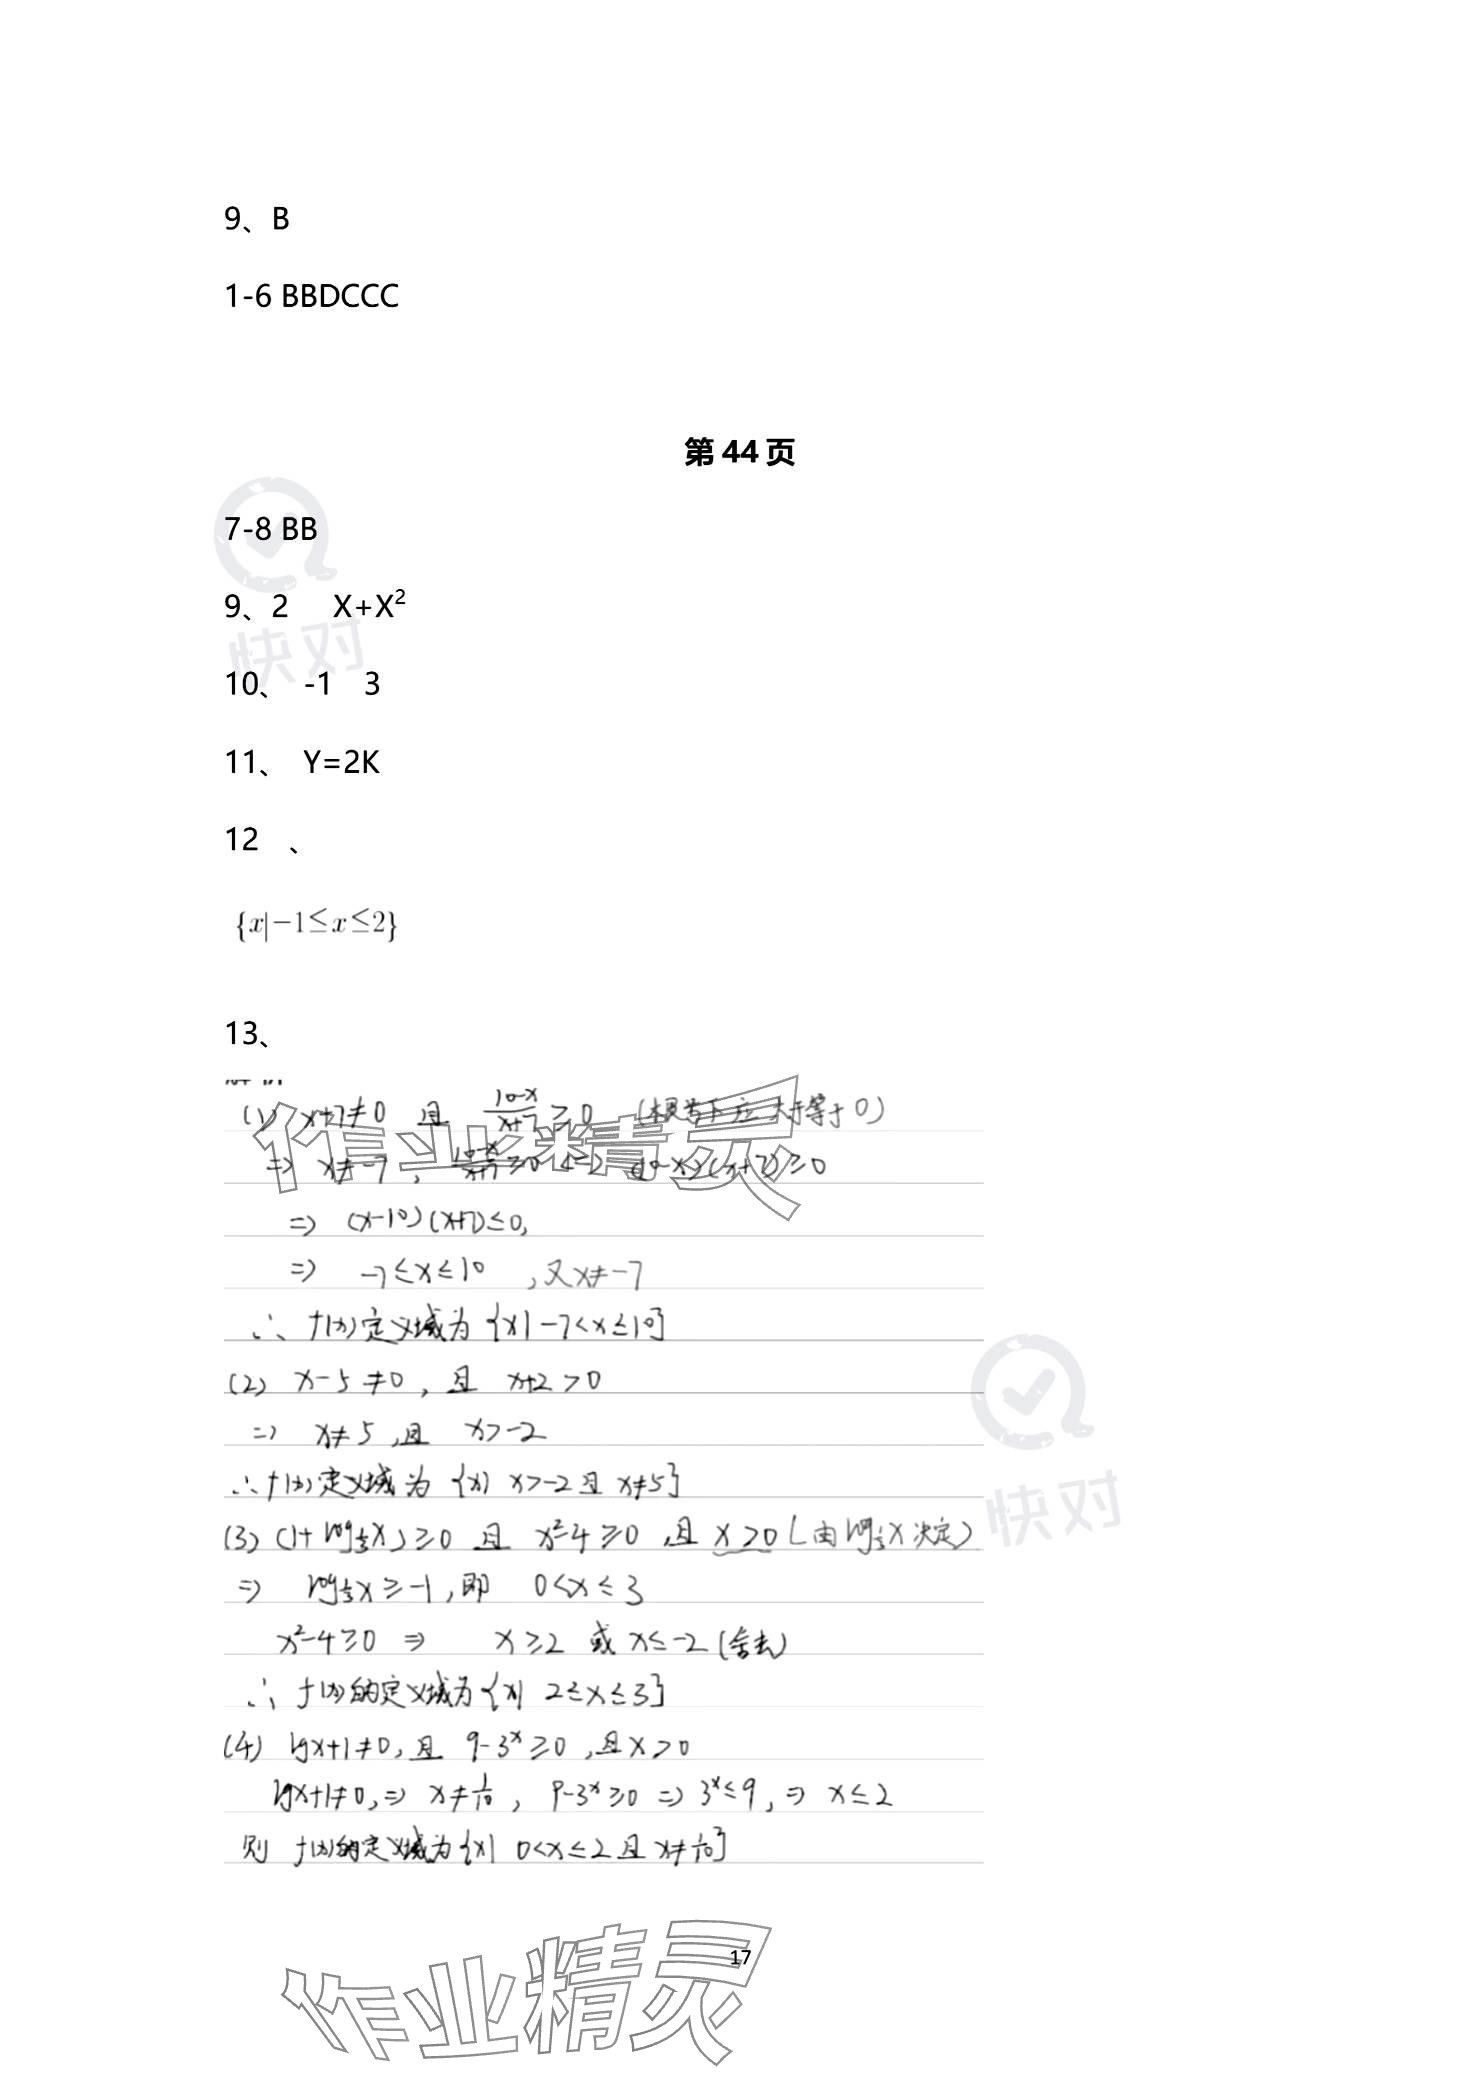 9、B
1-6 BBDCCC
第 44 页
7-8 BB
快对
9、2 X+X²
10、 -1 3
11、 Y=2K
12 、
{x|-1≤x≤2}
13、
(1) x+7≠0 且 (10-x)/(x+7)≥0 (根号下应大于等于0)
作业精灵
=> x≠-7, (10-x)/(x+7)≥0 <=> (10-x)(x+7)≥0
=> (x-10)(x+7)≤0,
=> -7≤x≤10 ,又x≠-7
∴ f(x)定义域为 {x|-7<x≤10}
(2) x-5≠0, 且 x+2>0
=> x≠5,且 x>-2
∴f(x)定义域为 {x| x>-2且x≠5}
快对
(3) (1+log⅓x)≥0 且 x²-4≥0 ,且 x>0(由log⅓x决定)
=> log⅓x≥-1,即 0<x≤3
x²-4≥0 => x≥2 或 x≤-2(舍去)
∴ f(x)的定义域为{x| 2≤x≤3}
(4) lgx+1≠0,且 9-3ˣ≥0 ,且x>0
lgx+1≠0,=> x≠1/10, 9-3ˣ≥0 => 3ˣ≤9, => x≤2
则 f(x)的定义域为{x| 0<x≤2且x≠1/10}
17
作业精灵